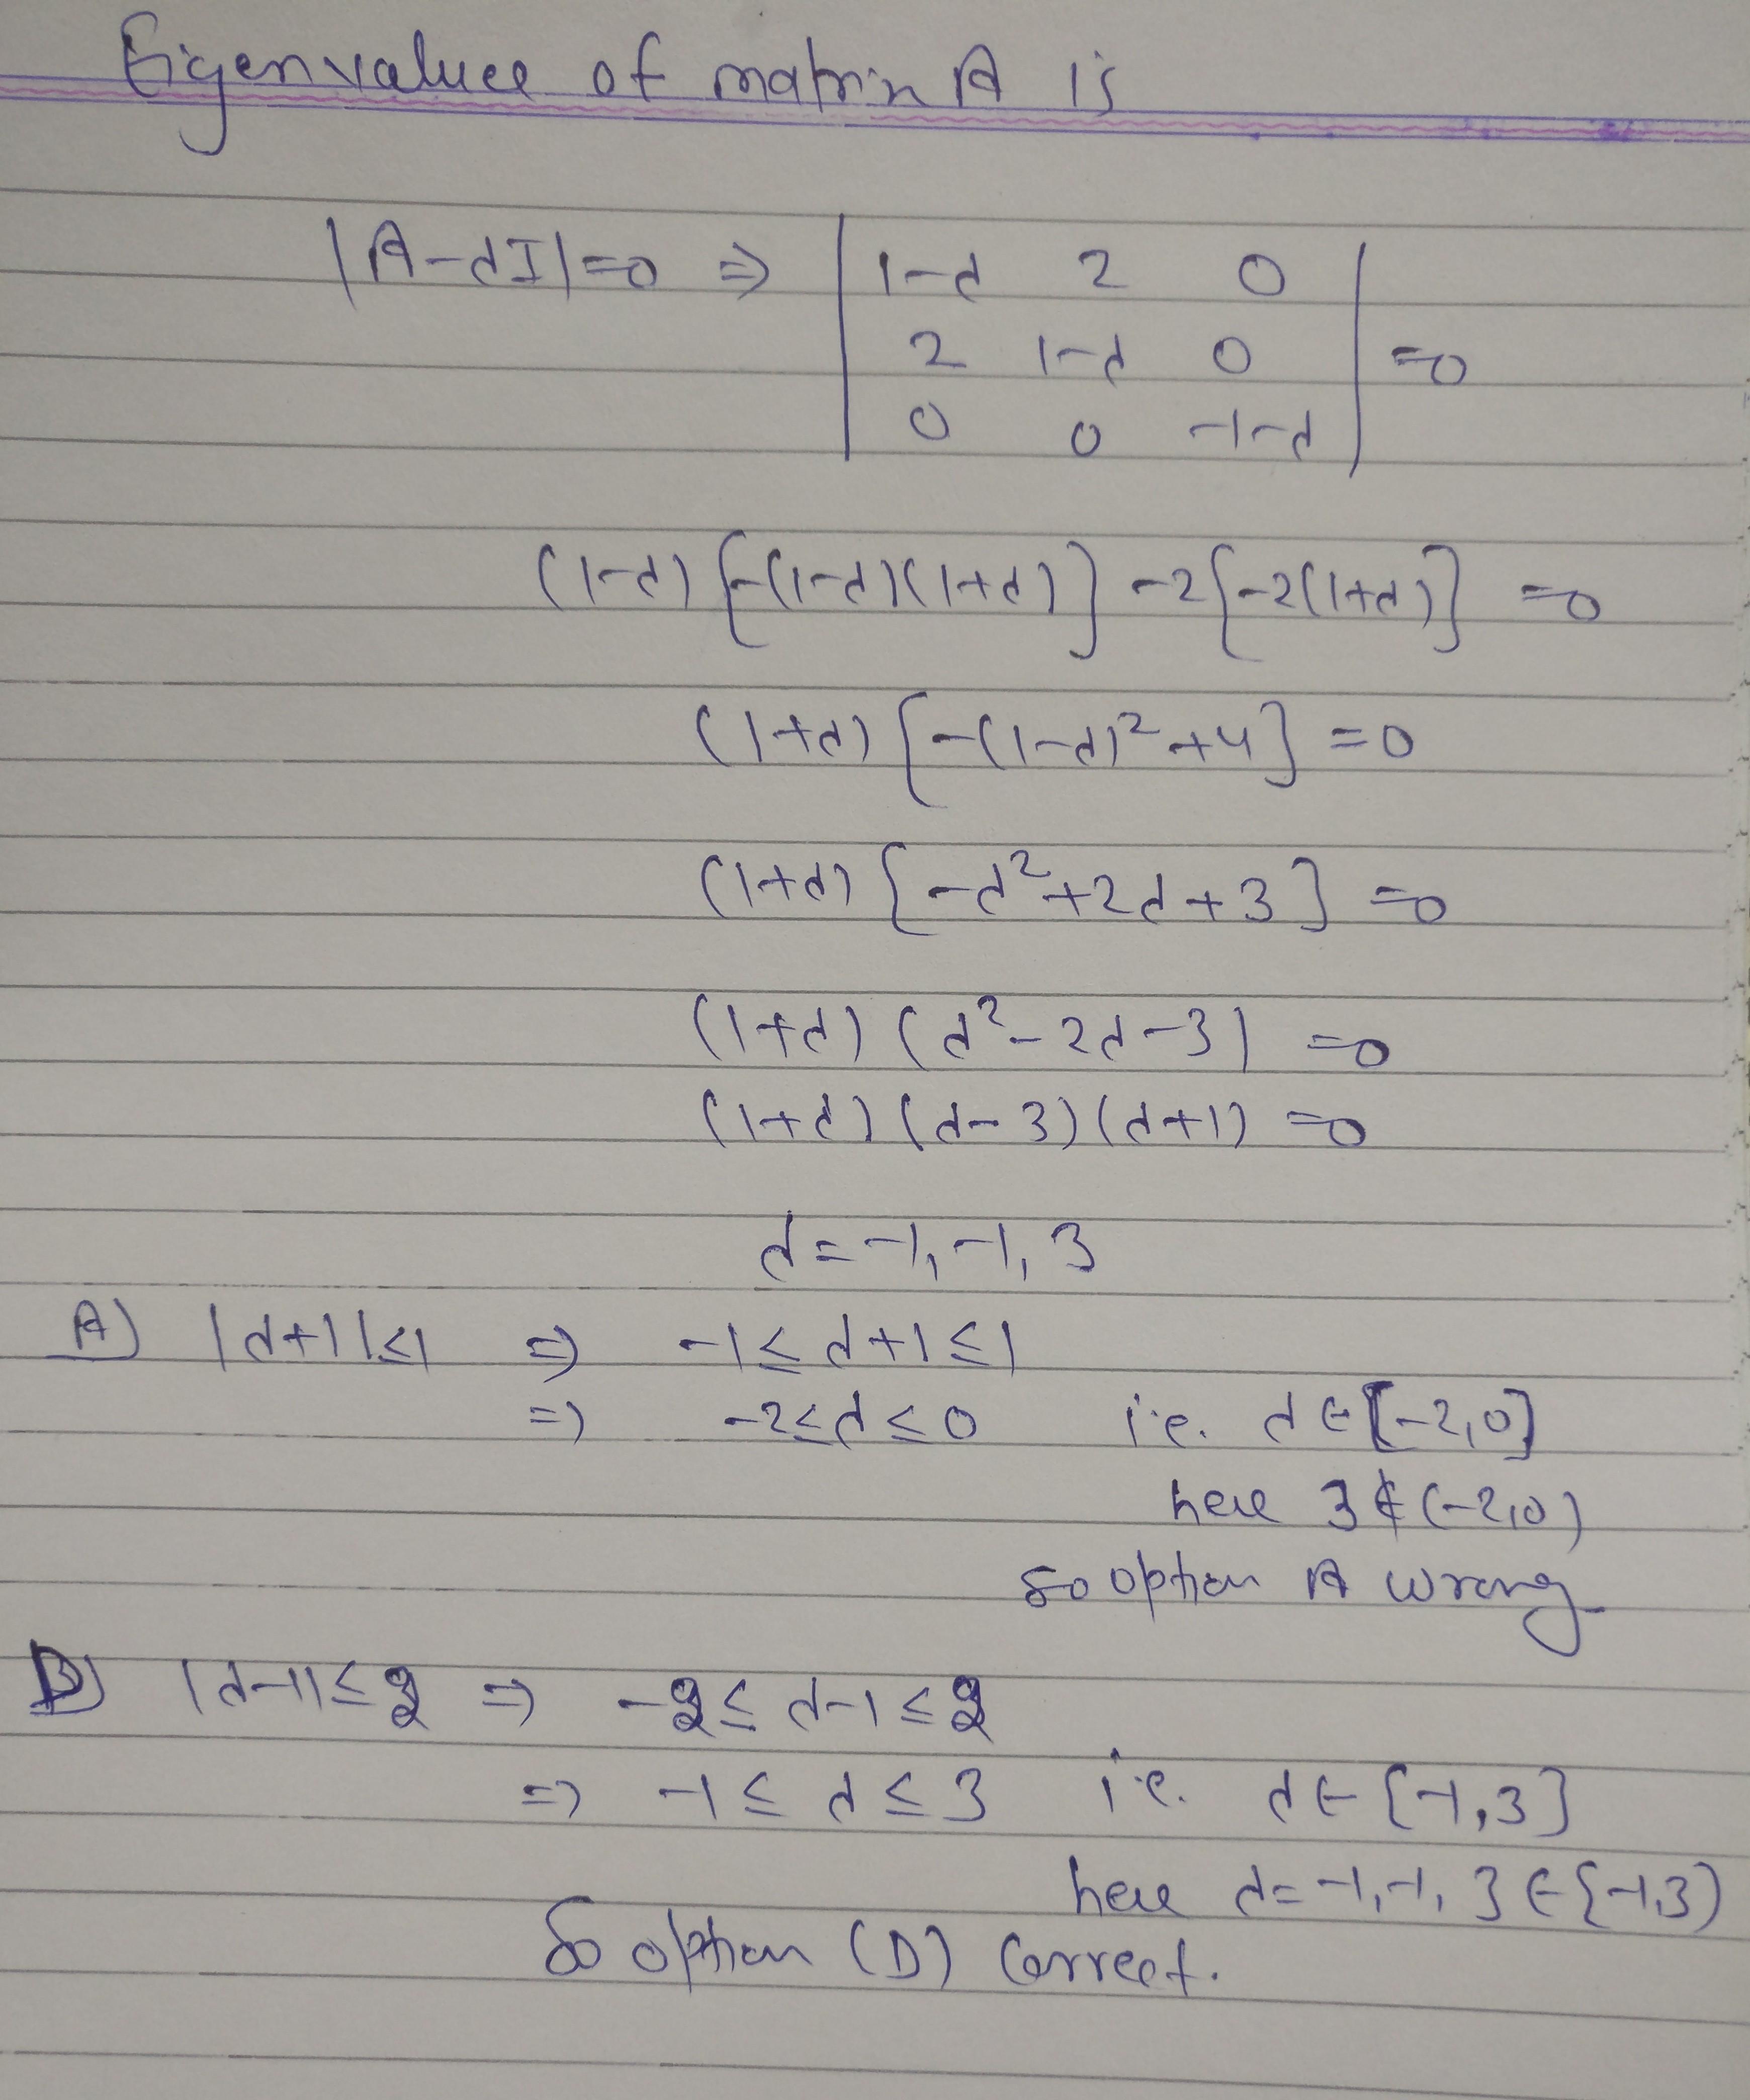 Eigenvalues of matrix A is
|A-dI|=0 ⇒ | 1-d 2 0 |
| 2 1-d 0 | =0
| 0 0 -1-d |
(1-d) {-(1-d)(1+d)} -2{-2(1+d)} =0
(1+d) {-(1-d)² +4} =0
(1+d) {-d²+2d+3} =0
(1+d) (d²-2d-3) =0
(1+d) (d-3) (d+1) =0
d = -1, -1, 3
A) |d+1|≤1 ⇒ -1 ≤ d+1 ≤ 1
⇒ -2 ≤ d ≤ 0 i.e. d ∈ [-2,0]
here 3 ∉ (-2,0)
So option A wrong
D) |d-1| ≤ 2 ⇒ -2 ≤ d-1 ≤ 2
⇒ -1 ≤ d ≤ 3 i.e. d ∈ [-1,3]
here d = -1, -1, 3 ∈ {-1,3)
So option (D) Correct.